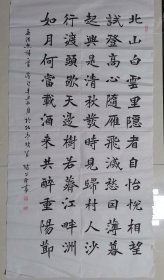 北山白雲里隱者自怡悅相望
試登高心隨雁飛滅愁因薄暮
起興是清秋發時見歸村人沙
行渡頭歇天邊樹若薺江畔洲
如月何當載酒來共醉重陽節
孟浩然詩